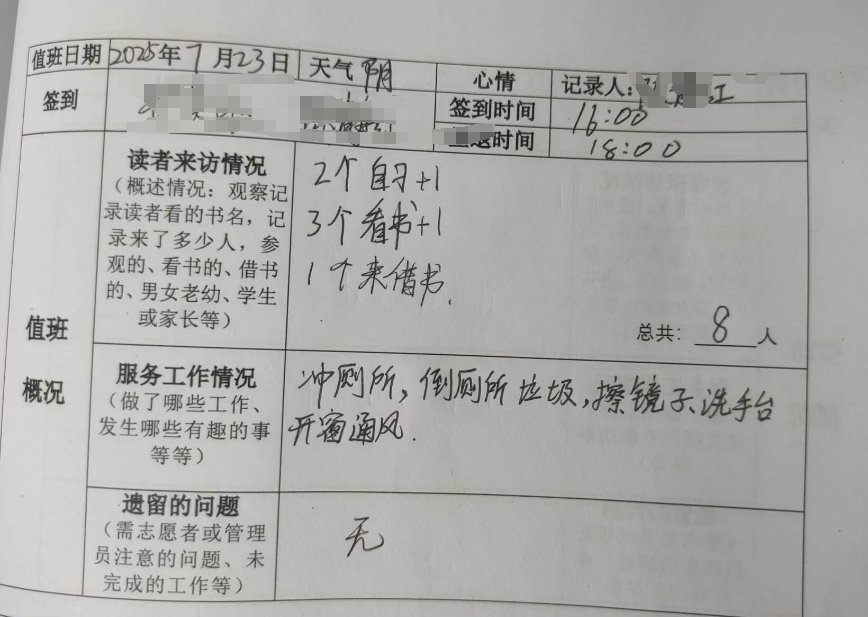 值班日期 2025年7月23日 天气 阴 心情 记录人：
签到 签到时间 16:00
时间 18:00
值班概况
读者来访情况
（概述情况：观察记
录读者看的书名，记
录来了多少人，参
观的、看书的、借书
的、男女老幼、学生
或家长等）
2个自习+1
3个看书+1
1个来借书.
总共：8人
服务工作情况
（做了哪些工作、
发生哪些有趣的事
等等）
冲厕所，倒厕所垃圾，擦镜子、洗手台
开窗通风.
遗留的问题
（需志愿者或管理
员注意的问题、未
完成的工作等）
无